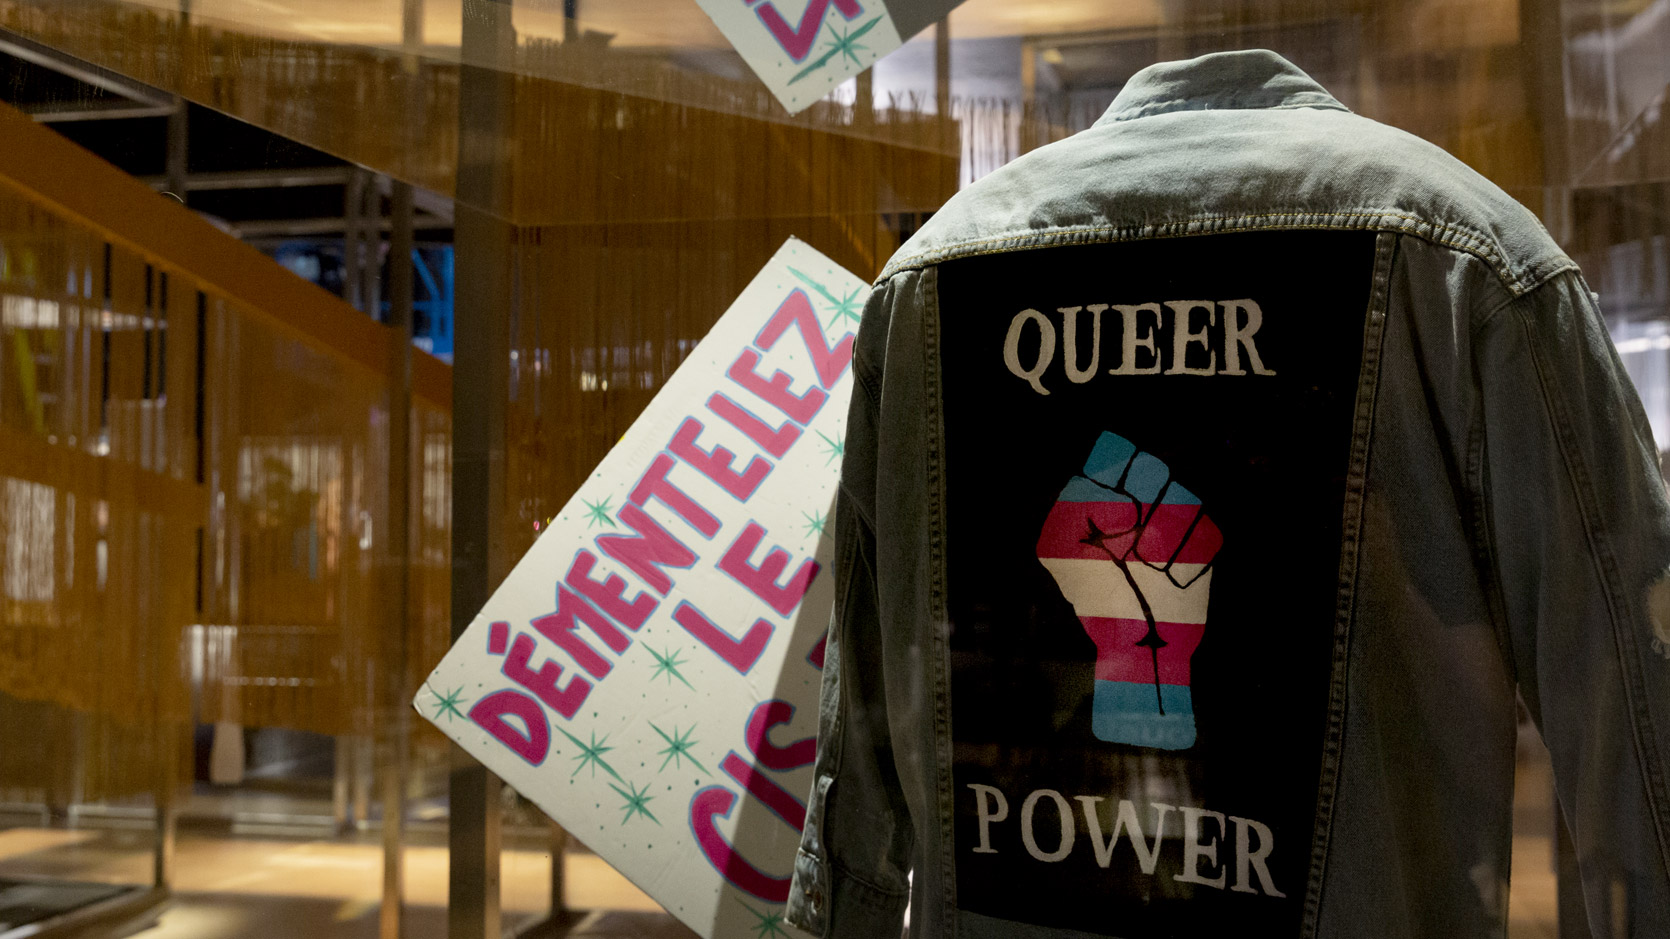 DÉMENTELEZ
LE
QUEER
POWER